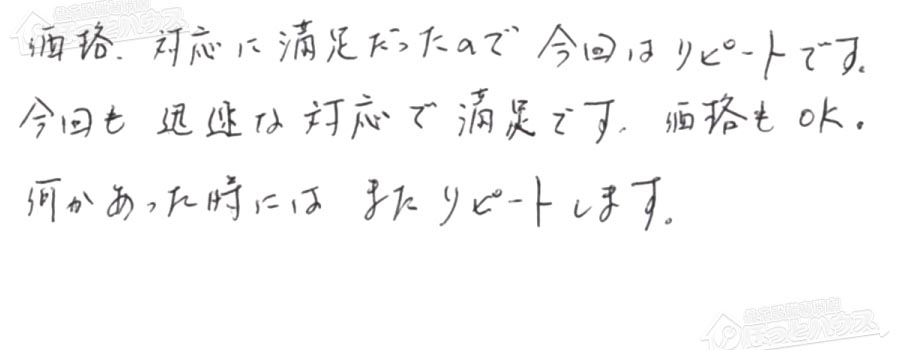 価格、対応に満足だったので今回はリピートです。
今回も迅速な対応で満足です。価格もOK。
何かあった時にはまたリピートします。
ほっとハウス